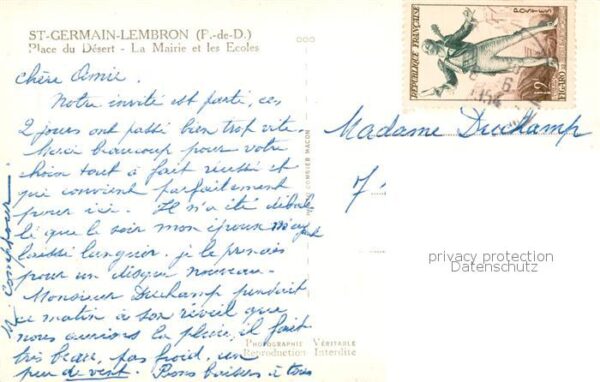 ST-GERMAIN-LEMBRON (P.-de-D.)
Place du Désert - La Mairie et les Ecoles
Chère Amie.
Notre invité est parti, ces
2 jours ont passé bien trop vite.
Merci beaucoup pour votre
choix tout à fait réussi et
qui convient parfaitement
pour ici. Il n'a été débal
lé que le soir mon époux m'ayant
laissé languir. je le prenais
pour un disque nouveau.
Monsieur Duchamp pendant
ce matin à son réveil que
nous aurions la pluie, il fait
très beau, pas froid, un
peu de vent. Bons baisers à tous
M.
COMBIER MACON
PHOTOGRAPHIE VÉRITABLE
Reproduction Interdite
RÉPUBLIQUE FRANÇAISE
POSTES
12
FIGARO
Madame Duchamp
7
privacy protection
Datenschutz